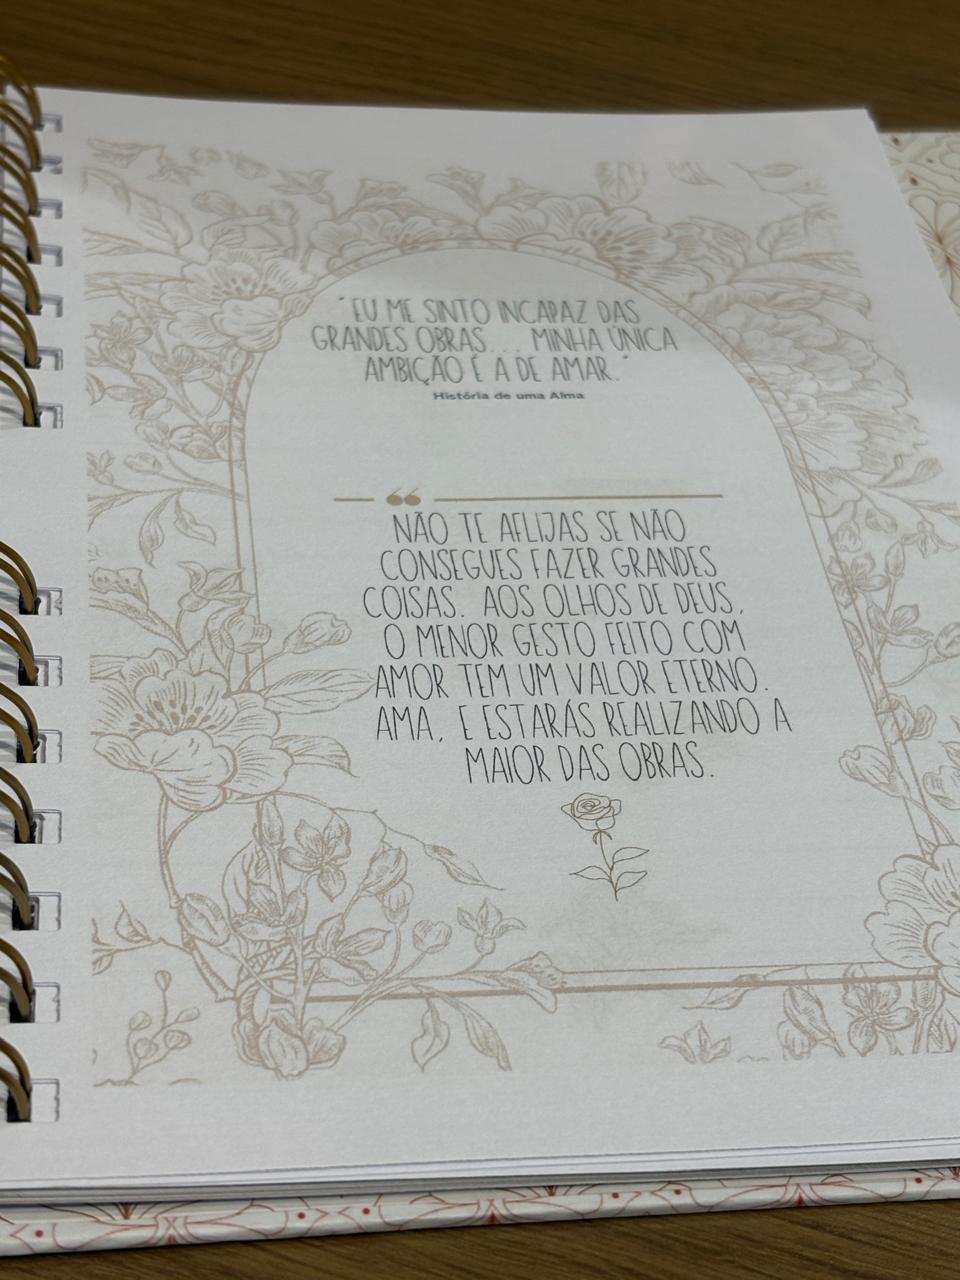 "EU ME SINTO INCAPAZ DAS
GRANDES OBRAS... MINHA ÚNICA
AMBIÇÃO É A DE AMAR."
História de uma Alma
NÃO TE AFLIJAS SE NÃO
CONSEGUES FAZER GRANDES
COISAS. AOS OLHOS DE DEUS,
O MENOR GESTO FEITO COM
AMOR TEM UM VALOR ETERNO.
AMA, E ESTARÁS REALIZANDO A
MAIOR DAS OBRAS.